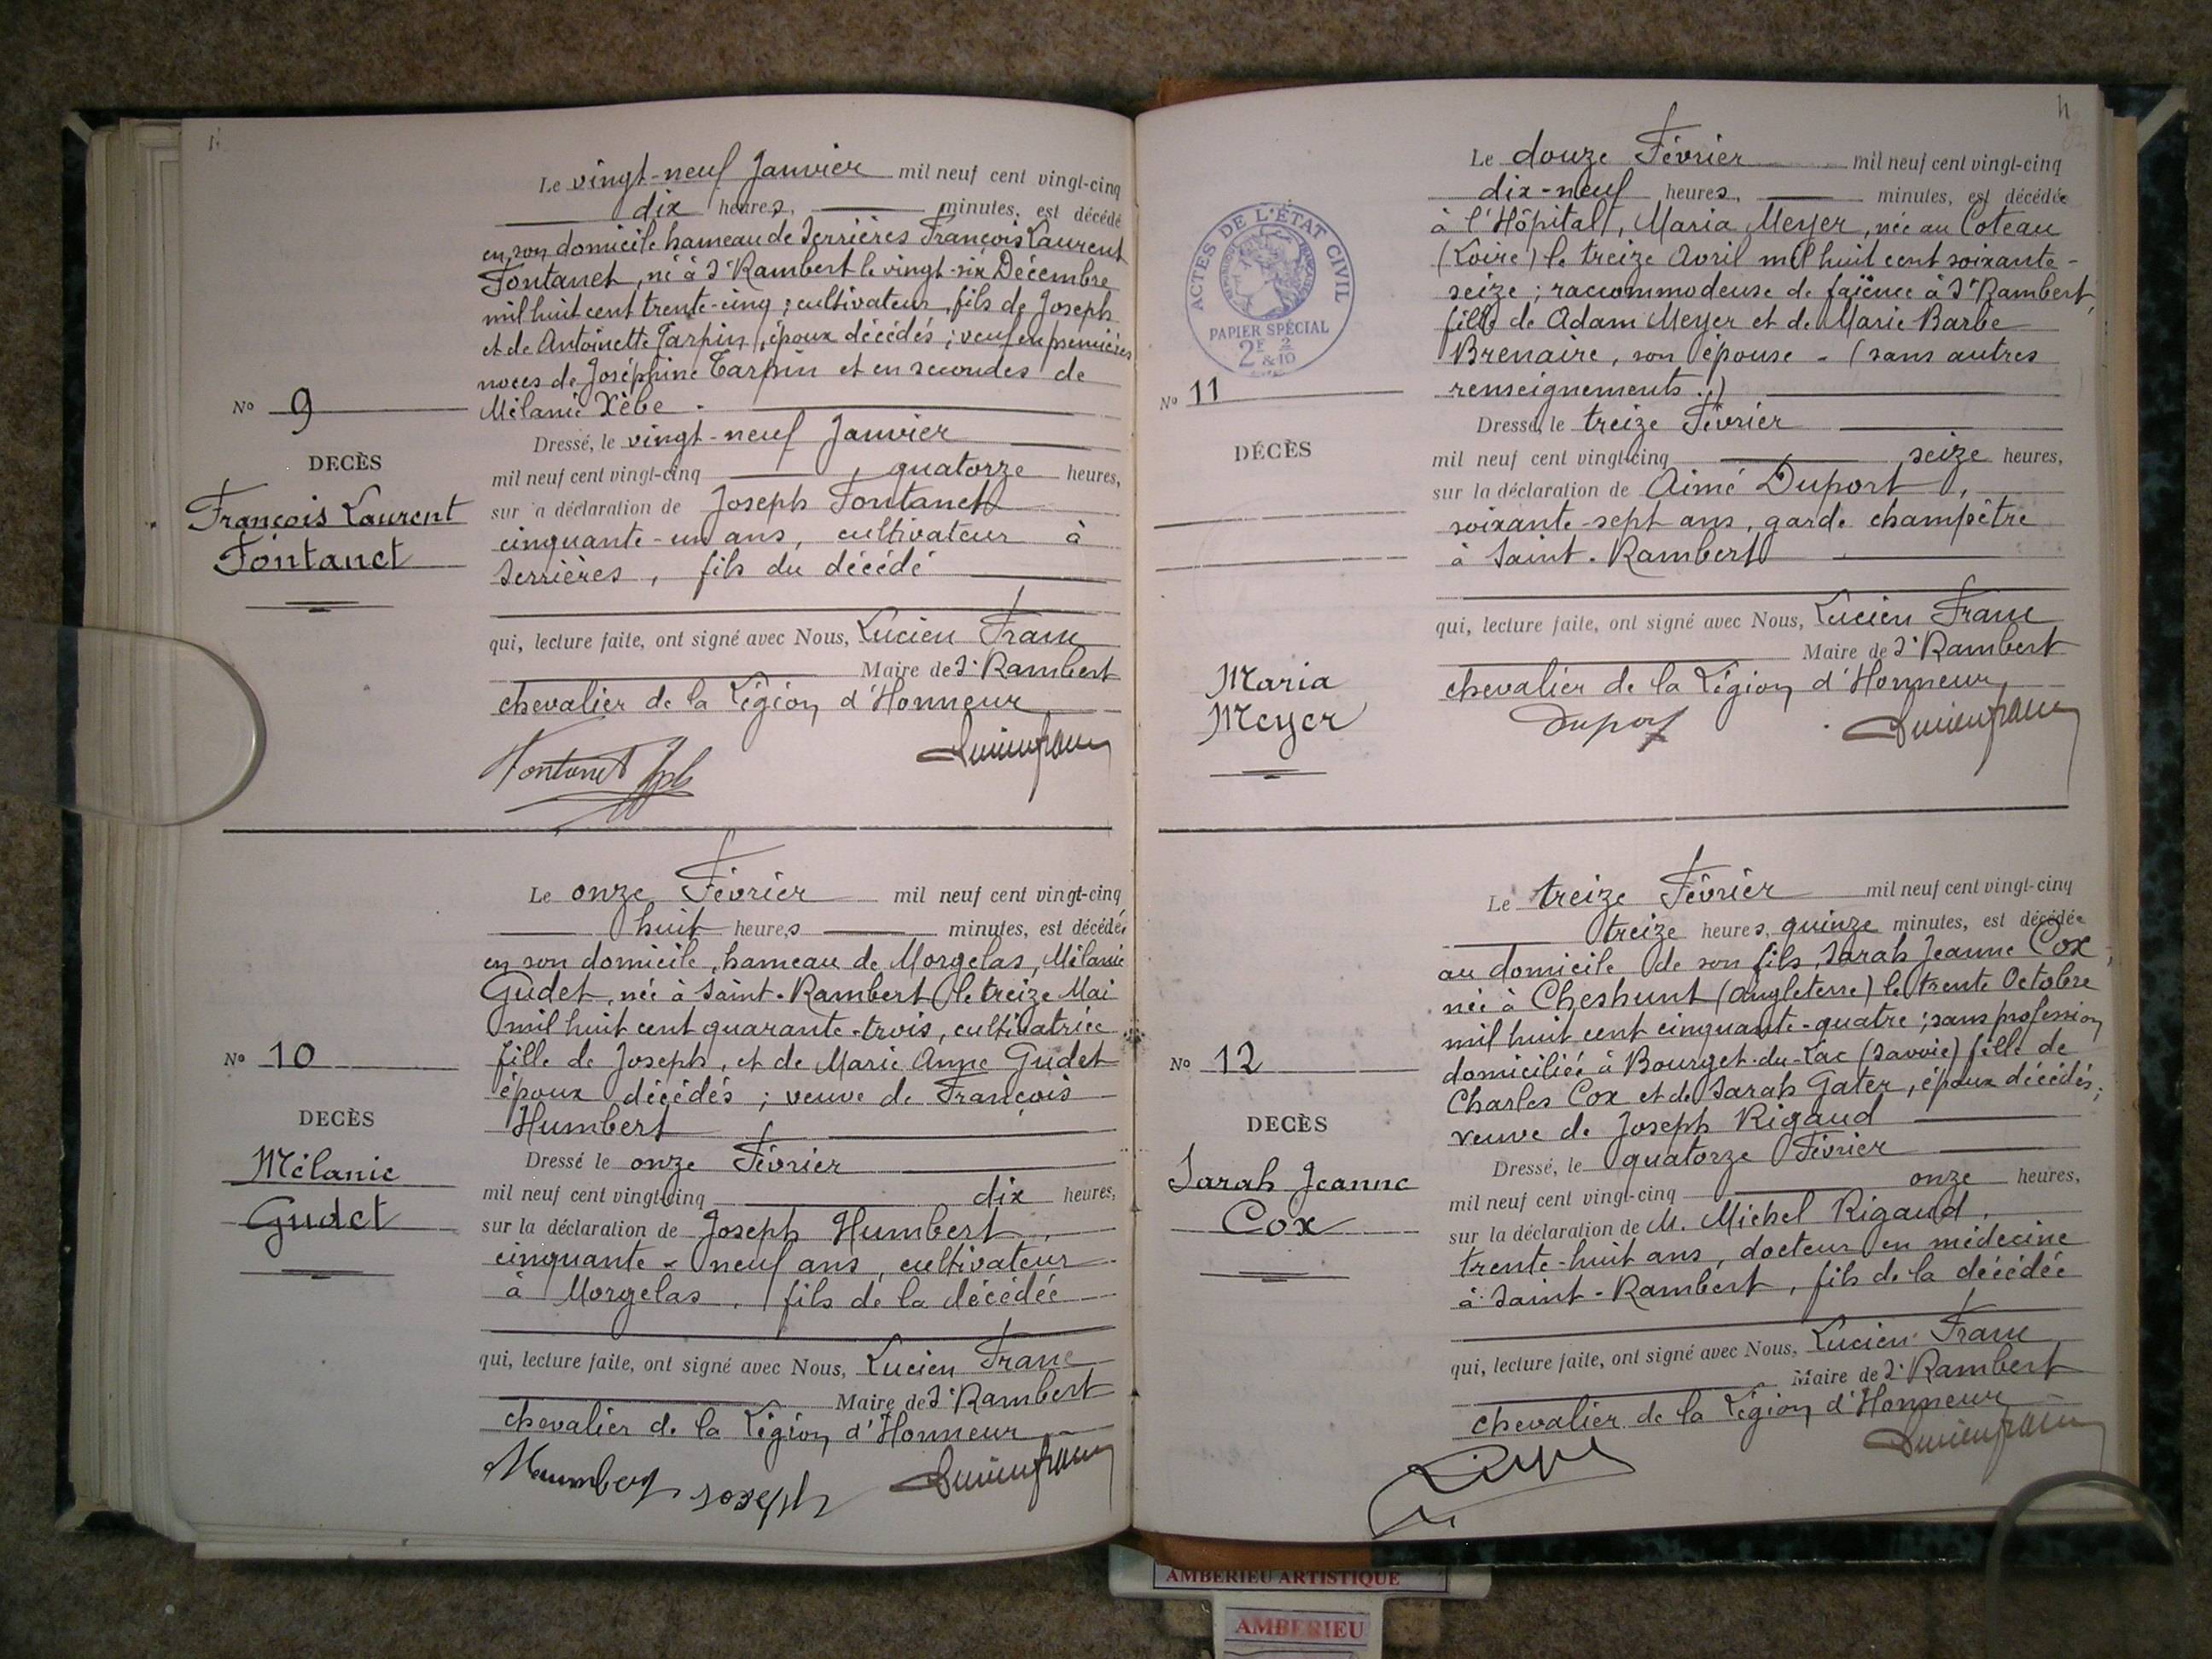 Le vingt-neuf Janvier mil neuf cent vingt-cinq
dix heures, minutes, est décédé
en son domicile hameau de Serrières François Laurent
Fontanet, né à St Rambert le vingt-six Décembre
mil huit cent trente-cinq ; cultivateur, fils de Joseph
et de Antoinette Tarpin, époux décédés ; veuf en premières
noces de Joséphine Tarpin et en secondes de
Mélanie
No 9
DECÈS
François Laurent
Fontanet
Dressé, le vingt-neuf Janvier
mil neuf cent vingt-cinq , quatorze heures,
sur a déclaration de Joseph Fontanet
cinquante-un ans, cultivateur à
Serrières, fils du décédé
qui, lecture faite, ont signé avec Nous, Lucien Franc
Maire de St Rambert
chevalier de la Légion d'Honneur
Fontanet Jph
Le onze Février mil neuf cent vingt-cinq
huit heures minutes, est décédée
en son domicile, hameau de Morgelas, Mélanie
Gudet, née à Saint-Rambert le treize Mai
mil huit cent quarante-trois, cultivatrice
fille de Joseph, et de Marie Anne Gudet
époux décédés ; veuve de François
Humbert
No 10
DECÈS
Mélanie
Gudet
Dressé le onze Février
mil neuf cent vingt-cinq dix heures,
sur la déclaration de Joseph Humbert,
cinquante-neuf ans, cultivateur
à Morgelas, fils de la décédée
qui, lecture faite, ont signé avec Nous, Lucien Franc
Maire de St Rambert
chevalier de la Légion d'Honneur
Humbert Joseph
Le douze Février mil neuf cent vingt-cinq
dix-neuf heures, minutes, est décédée
à l'Hôpital, Maria Meyer, née au Coteau
(Loire) le treize Avril mil huit cent soixante-
seize ; raccommodeuse de faïence à St Rambert,
fille de Adam Meyer et de Marie Barbe
Brenaire, son épouse - (sans autres
renseignements.)
ACTES DE L'ÉTAT CIVIL
PAPIER SPÉCIAL
2F 2
& 10
No 11
DÉCÈS
Maria
Meyer
Dressé, le treize Février
mil neuf cent vingt-cinq seize heures,
sur la déclaration de Aimé Duport,
soixante-sept ans, garde champêtre
à Saint-Rambert
qui, lecture faite, ont signé avec Nous, Lucien Franc
Maire de St Rambert
chevalier de la Légion d'Honneur,
Duport Lucien Franc
Le treize Février mil neuf cent vingt-cinq
treize heures, quinze minutes, est décédée
au domicile de son fils, Sarah Jeanne Cox,
née à Cheshunt (Angleterre) le trente Octobre
mil huit cent cinquante-quatre ; sans profession
domiciliée à Bourget-du-Lac (Savoie) fille de
Charles Cox et de Sarah Gater, époux décédés ;
veuve de Joseph Rigaud
No 12
DECÈS
Sarah Jeanne
Cox
Dressé, le quatorze Février
mil neuf cent vingt-cinq onze heures,
sur la déclaration de M. Michel Rigaud,
trente-huit ans, docteur en médecine
à Saint-Rambert, fils de la décédée
qui, lecture faite, ont signé avec Nous, Lucien Franc
Maire de St Rambert
chevalier de la Légion d'Honneur
AMBERIEU ARTISTIQUE
AMBERIEU